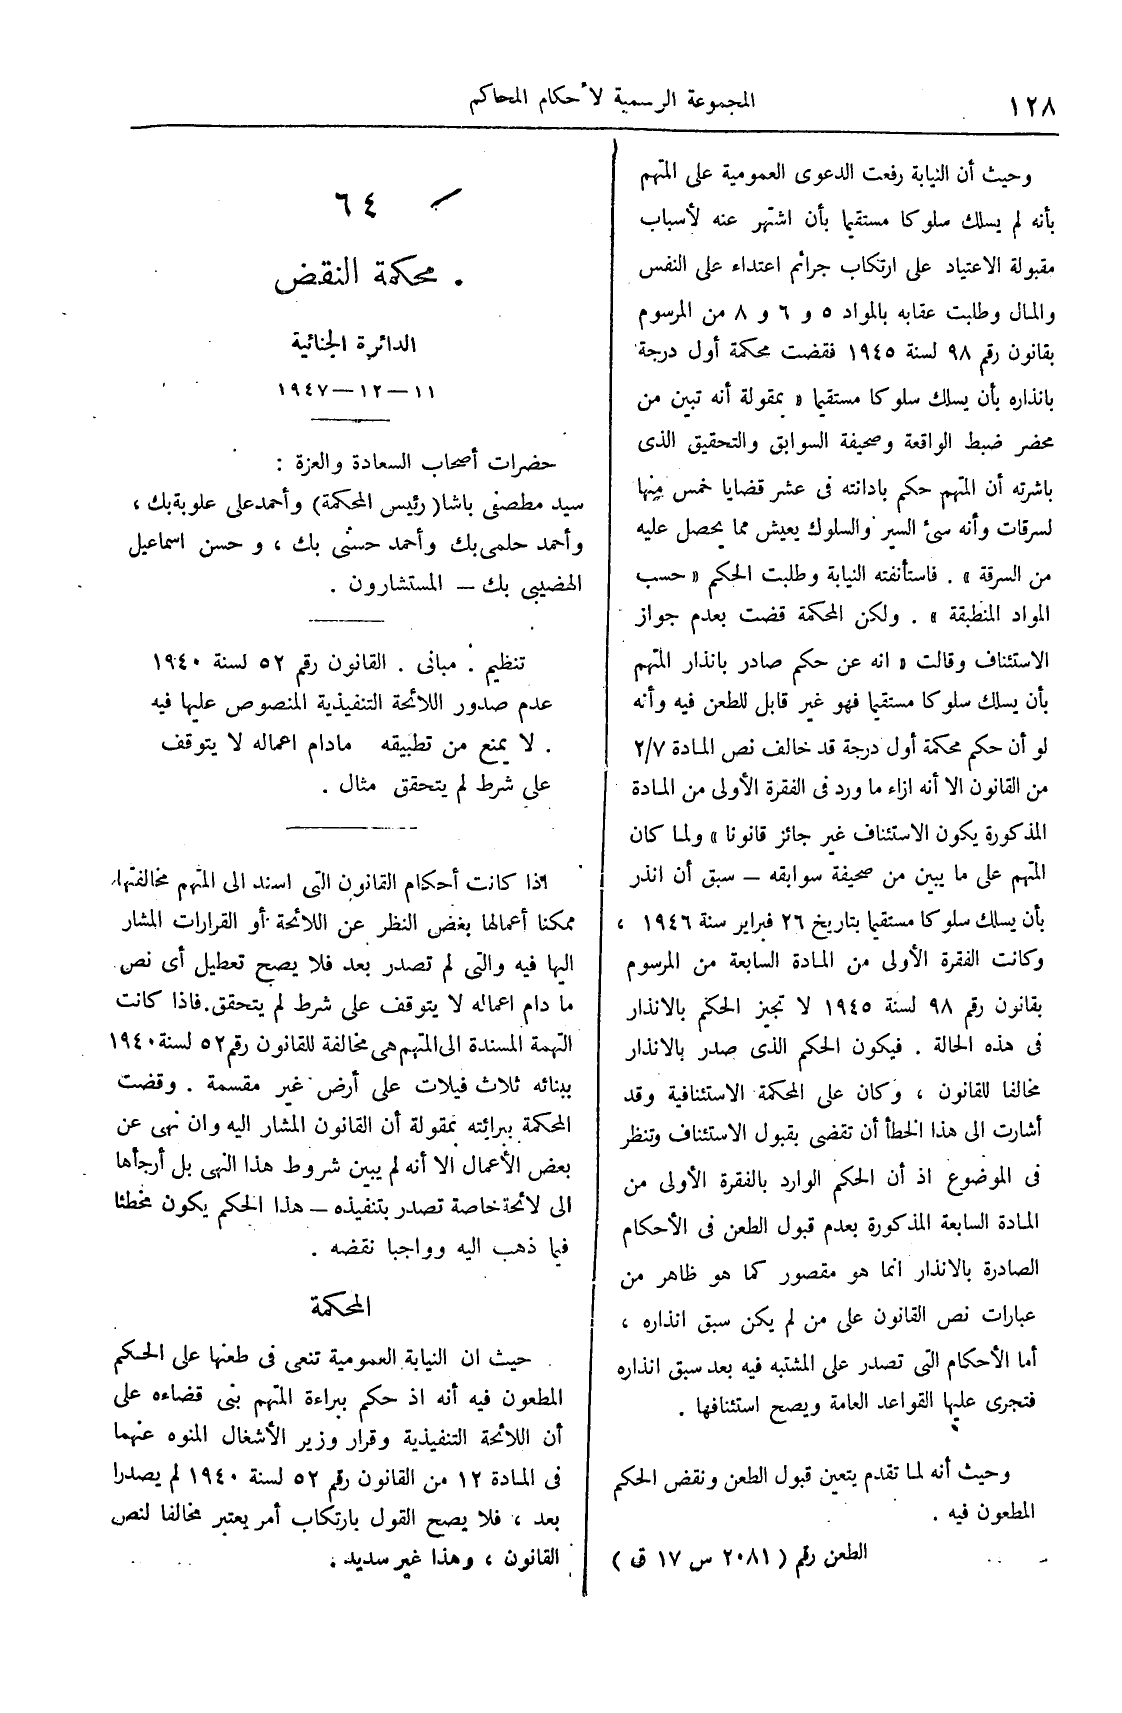 ١٢٨
المجموعة الرسمية لأحكام المحاكم
وحيث أن النيابة رفعت الدعوى العمومية على المتهم
بأنه لم يسلك سلوكا مستقيما بأن اشتهر عنه لأسباب
مقبولة الاعتياد على ارتكاب جرائم اعتداء على النفس
والمال وطلبت عقابه بالمواد ٥ و ٦ و ٨ من المرسوم
بقانون رقم ٩٨ لسنة ١٩٤٥ فقضت محكمة أول درجة
بانذاره بأن يسلك سلوكا مستقيما « بمقولة أنه تبين من
محضر ضبط الواقعة وصحيفة السوابق والتحقيق الذى
باشرته أن المتهم حكم بادانته فى عشر قضايا خمس منها
لسرقات وأنه سئ السير والسلوك يعيش مما يحصل عليه
من السرقة » . فاستأنفته النيابة وطلبت الحكم « حسب
المواد المنطبقة » . ولكن المحكمة قضت بعدم جواز
الاستئناف وقالت « انه عن حكم صادر بانذار المتهم
بأن يسلك سلوكا مستقيما فهو غير قابل للطعن فيه وأنه
لو أن حكم محكمة أول درجة قد خالف نص المادة ٢/٧
من القانون الا أنه ازاء ما ورد فى الفقرة الأولى من المادة
المذكورة يكون الاستئناف غير جائز قانونا » ولما كان
المتهم على ما يبين من صحيفة سوابقه — سبق أن انذر
بأن يسلك سلوكا مستقيما بتاريخ ٢٦ فبراير سنة ١٩٤٦ ،
وكانت الفقرة الأولى من المادة السابعة من المرسوم
بقانون رقم ٩٨ لسنة ١٩٤٥ لا تجيز الحكم بالانذار
فى هذه الحالة . فيكون الحكم الذى صدر بالانذار
مخالفا للقانون ، وكان على المحكمة الاستئنافية وقد
أشارت الى هذا الخطأ أن تقضى بقبول الاستئناف وتنظر
فى الموضوع اذ أن الحكم الوارد بالفقرة الأولى من
المادة السابعة المذكورة بعدم قبول الطعن فى الأحكام
الصادرة بالانذار انما هو مقصور كما هو ظاهر من
عبارات نص القانون على من لم يكن سبق انذاره ،
أما الأحكام التى تصدر على المشتبه فيه بعد سبق انذاره
فتجرى عليها القواعد العامة ويصح استئنافها .
وحيث أنه لما تقدم يتعين قبول الطعن ونقض الحكم
المطعون فيه .
الطعن رقم ( ٢٠٨١ س ١٧ ق )
٦٤
محكمة النقض
الدائرة الجنائية
١١ — ١٢ — ١٩٤٧
حضرات أصحاب السعادة والعزة :
سيد مطصفى باشا( رئيس المحكمة) وأحمدعلى علوبةبك ،
وأحمد حلمى بك وأحمد حسنى بك ، و حسن اسماعيل
الهضيبى بك — المستشارون .
تنظيم . مبانى . القانون رقم ٥٢ لسنة ١٩٤٠
عدم صدور اللائحة التنفيذية المنصوص عليها فيه
. لا يمنع من تطبيقه مادام اعماله لا يتوقف
على شرط لم يتحقق مثال .
اذا كانت أحكام القانون التى اسند الى المتهم مخالفتها
ممكنا أعمالها بغض النظر عن اللائحة أو القرارات المشار
اليها فيه والتى لم تصدر بعد فلا يصح تعطيل أى نص
ما دام اعماله لا يتوقف على شرط لم يتحقق. فاذا كانت
التهمة المسندة الى المتهم هى مخالفة للقانون رقم ٥٢ لسنة ١٩٤٠
ببنائه ثلاث فيلات على أرض غير مقسمة . وقضت
المحكمة ببرائته بمقولة أن القانون المشار اليه وان نهى عن
بعض الأعمال الا أنه لم يبين شروط هذا النهى بل أرجأها
الى لائحة خاصة تصدر بتنفيذه — هذا الحكم يكون مخطئا
فيما ذهب اليه وواجبا نقضه .
المحكمة
حيث ان النيابة العمومية تنعى فى طعنها على الحكم
المطعون فيه أنه اذ حكم ببراءة المتهم بنى قضاءه على
أن اللائحة التنفيذية وقرار وزير الأشغال المنوه عنهما
فى المادة ١٢ من القانون رقم ٥٢ لسنة ١٩٤٠ لم يصدرا
بعد ، فلا يصح القول بارتكاب أمر يعتبر مخالفا لنص
القانون ، وهذا غير سديد .